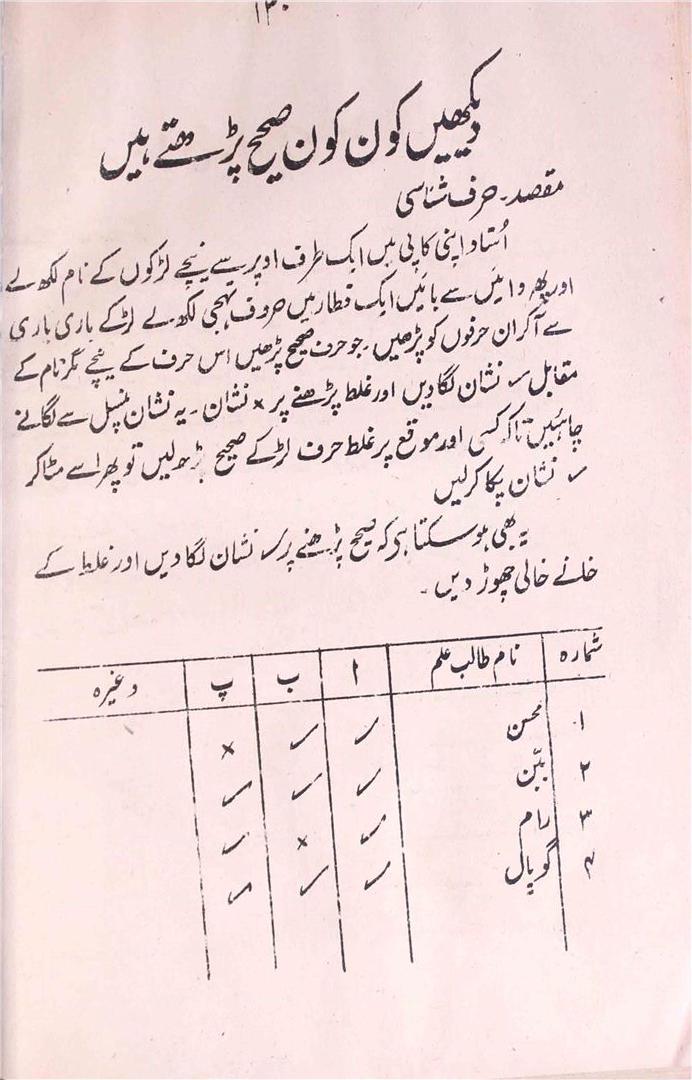 ۱۳۰
دیکھیں کون کون صحیح پڑھتے ہیں
مقصد۔ حرف شناسی
اُستاد اپنی کاپی میں ایک طرف اوپر سے نیچے لڑکوں کے نام لکھ لے
اور پھر دائیں سے بائیں ایک قطار میں حروف تہجی لکھ لے لڑکے باری باری
سے آکر ان حرفوں کو پڑھیں۔ جو حرف صحیح پڑھیں اس حرف کے نیچے مگر نام کے
مقابل ✓ نشان لگادیں اور غلط پڑھنے پر × نشان۔ یہ نشان پنسل سے لگانے
چاہئیں تاکہ کسی اور موقع پر غلط حرف لڑکے صحیح پڑھ لیں تو پھر اسے مٹاکر
✓ نشان پکا کرلیں
یہ بھی ہو سکتا ہی کہ صحیح پڑھنے پر ✓ نشان لگادیں اور غلط کے
خانے خالی چھوڑ دیں۔
شمارہ نام طالب علم ا ب پ وغیرہ
۱ محسن ✓ ✓ ×
۲ ببّن ✓ ✓ ✓
۳ رام ✓ × ✓
۴ گوپال ✓ ✓ ✓